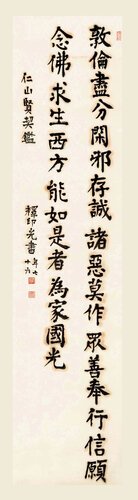 敦倫盡分閑邪存誠諸惡莫作眾善奉行信願
念佛求生西方能如是者為家國光
仁山賢契鑑
釋印光書
年七十六